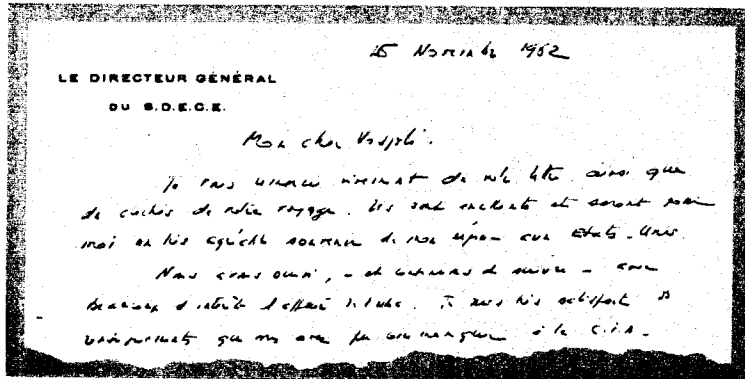 Novembre 1962
LE DIRECTEUR GÉNÉRAL
DU S.D.E.C.E.
Mon cher Vosjoli.
Je vous remercie vivement de votre lettre ainsi que
de clichés de notre voyage. Ils sont excellents et seront pour
moi un très agréable souvenir de mon séjour aux Etats-Unis
Nous avons suivi, - et continuons de suivre - avec
beaucoup d'intérêt l'affaire de Cuba. Je suis très satisfait
renseignements que pu communiquer à la C.I.A.